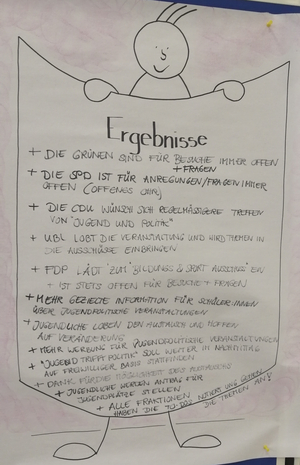 Ergebnisse
+ DIE GRÜNEN SIND FÜR BESUCHE IMMER OFFEN
+ FRAGEN
+ DIE SPD IST FÜR ANREGUNGEN/FRAGEN IMMER
OFFEN (OFFENES OHR)
+ DIE CDU WÜNSCHT SICH REGELMÄSSIGERE TREFFEN
VON "JUGEND UND POLITIK"
+ UBL LOBT DIE VERANSTALTUNG UND WIRD THEMEN IN
DIE AUSSCHÜSSE EINBRINGEN
+ FDP LÄDT ZUM "BILDUNGS & SPORT AUSSCHUSS" EIN
+ IST STETS OFFEN FÜR BESUCHE + FRAGEN
+ MEHR GEZIELTE INFORMATION FÜR SCHÜLER:INNEN
ÜBER JUGENDPOLITISCHE VERANSTALTUNGEN
+ JUGENDLICHE LOBEN DEN AUSTAUSCH UND HOFFEN
AUF VERÄNDERUNG
+ MEHR WERBUNG FÜR JUGENDPOLITISCHE VERANSTALTUNGEN
+ "JUGEND TRIFFT POLITIK" SOLL WEITER IM NACHMITTAG
AUF FREIWILLIGER BASIS STATTFINDEN
+ DANK FÜR DIE MÖGLICHKEIT DES AUSTAUSCHS
+ JUGENDLICHE WERDEN ANTRAG FÜR
JUGENDPLÄTZE STELLEN
+ ALLE FRAKTIONEN
HABEN DIE TO-DOS NOTIERT UND GEHEN
DIE THEMEN AN!